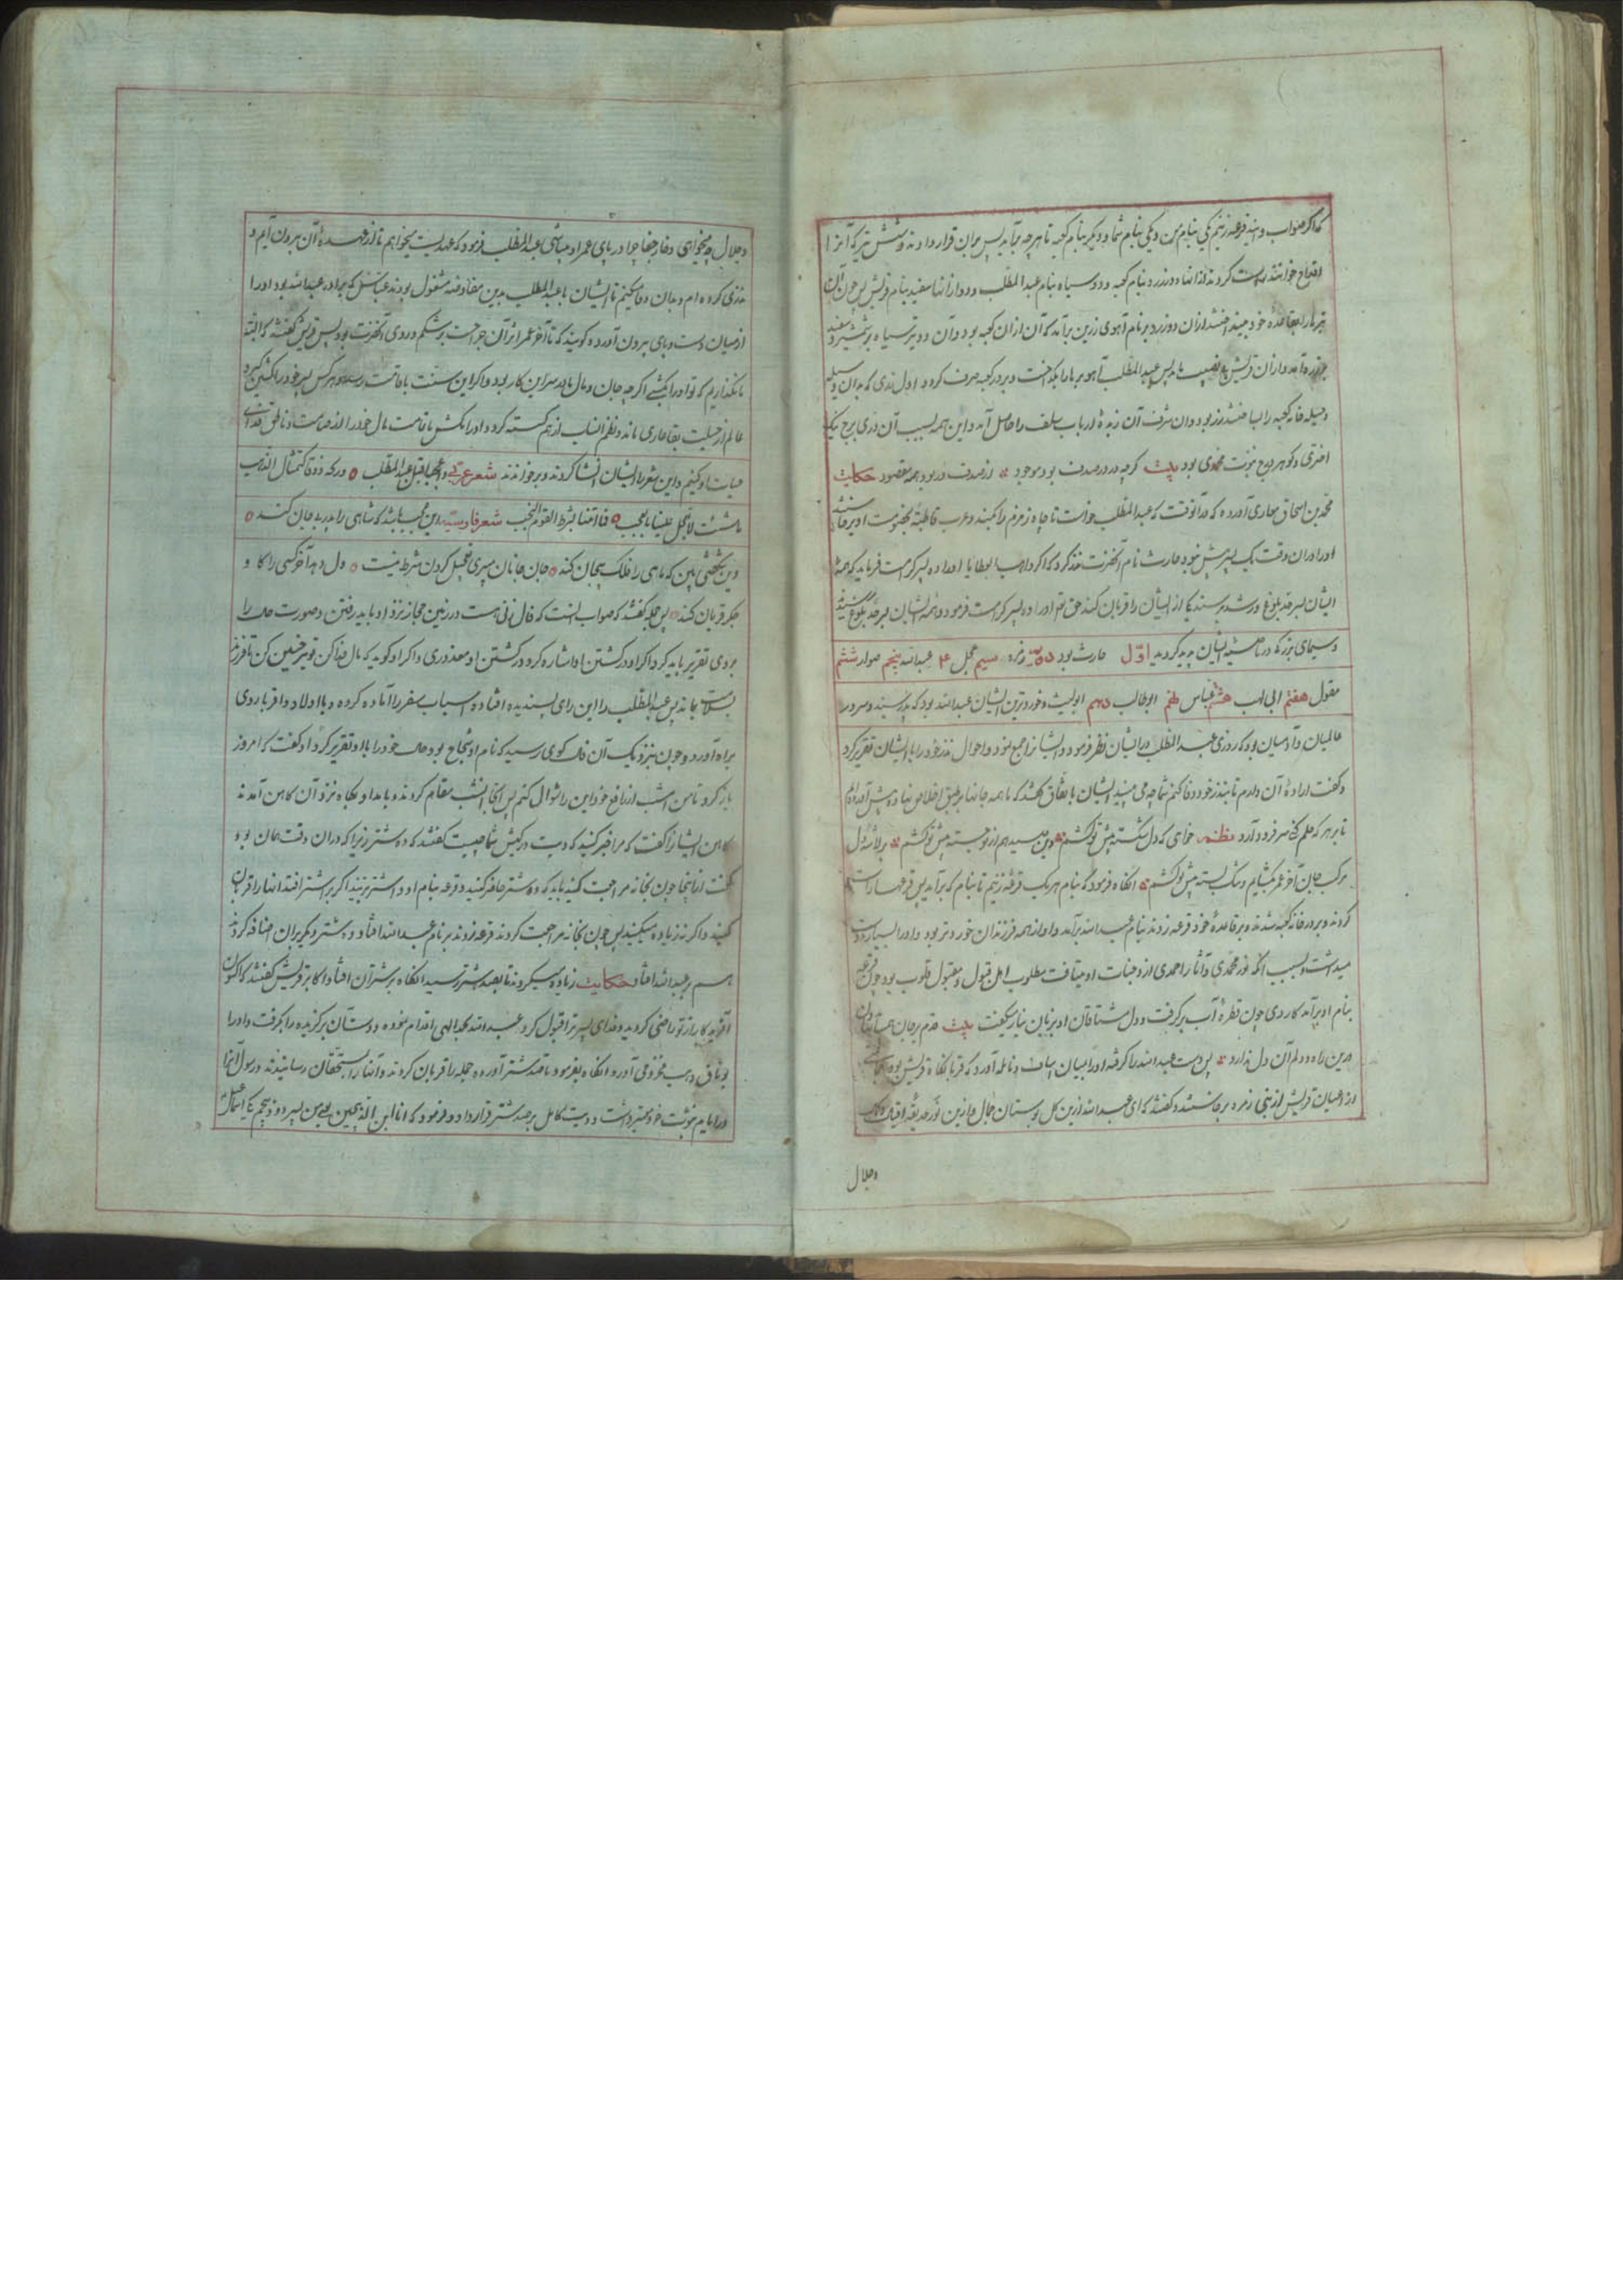 که اگر صواب دانید قرعه زنیم یکی بنام من و یکی بنام شما و دیگر بنام کعبه تا هر چه برآید پس بران قرار دادند و شش تیر که آنرا
اقداح خوانند راست کردند از انها دو زرد بنام کعبه و دو سیاه بنام عبدالمطلب و دو از انها سفید بنام قریش پس چون آن
تیرها را بقاعده خود بینداختند ازان دو زرد بر نام آهوی زرین برآمد که آن ازان کعبه بود و آن دو تیر سیاه بر شمشیر و
برآمد و ازان قریش بی نصیب ماند پس عبدالمطلب آهو برها را بگداخت و بر در کعبه صرف کرد و اول بدان وسیله
وحیله خانه کعبه را ساختند زر بود و ان شرف آن زبده ارباب سلف را حاصل آمد و این همه بسبب آن دری برج نیک
اختری و گوهر درج نبوت محمدی بود بیت گرچه در در صدف بود موجود از صدف در بود همه مقصود حکایت
محمد بن اسحاق آورده که در آنوقت که عبدالمطلب خواست تا چاه زمزم را بکند و عرب قاطبة بخصومت او برخاستند
او را دران وقت یک پسر بیش نبود حارث نام آنحضرت نذر کرد که اگر واهب العطایا او را ده پسر کرامت فرماید که همه
ایشان بسر حد بلوغ و رشد برسند یکی از ایشان را قربان کند حق تع او را ده پسر کرامت فرمود و همه ایشان بسر حد بلوغ رسیدند
و سیمای بزرگی در ناصیه ایشان پدید گردید اول حارث بود دوم حمزه سیم حجل ۴ عبدالله پنجم صرار ششم
مقول هفتم ابی لهب هشتم عباس نهم ابوطالب دهم ابولیث و خوردترین ایشان عبدالله بود که پدر سید و سرور
عالمیان و آدمیان بود که روزی عبدالمطلب در ایشان نظر فرمود و ایشانرا جمع نمود و احوال نذر خود را با ایشان تقریر کرد
و گفت اراده آن دارم تا بنذر خود وفا کنم شما چه می بینید ایشان باتفاق گفتند که ما همه جانها بر طبق اخلاص نهاده پیش آورده‌ایم
تا بر هر که حکم کنی سر فرود آرد نظم خوای که دل شکسته پیش تو کشم وین سینه هم از تو خسته پیش تو کشم
مرکب جان آخر عمر بگشایم و سگ بسته پیش تو کشم انگاه فرمود که بنام هر یک قرعه زنیم تا بنام که برآید پس قرعها راست
کردند و بر در خانه کعبه شدند و بر قاعده خود قرعه زدند بنام عبدالله برآمد و او از همه فرزندان خوردتر بود و او را بسیار دوست
میداشت و بسبب انکه نور محمدی و آثار احمدی از وجنات او میتافت مطلوب اهل قبول و مقبول قلوب بود چون قرعه
بنام او برآمد کاردی چون قطره آب برگرفت و دل مشتاقان او بزبان نیاز میگفت بیت
درین راه دودلم آن دل ندارد پس دست عبدالله را گرفته او را میان اساف و نایله آورد که قربانگاه قریش بود
از اعیان قریش از بنی زهره برخاستند و گفتند که ای عبدالله ازین گل بوستان جمال و ازین نور حدیقه
وجلال
وجلال چه میخواهی وخار جفا چرا در پای عمر او میپاشی عبدالمطلب فرمود که عهدیست میخواهم تا از عهده آن برون آیم و
نذری کرده ام و بدان وفا میکنم تا ایشان با عبدالمطلب بدین مقاوضه مشغول بودند عباس که برادر عبدالله بود او را
از میان دست و پای برون آورده گویند که تا آخر عمر اثر آن جراحت بر شکم و روی آنحضرت بود پس قریش گفتند که البته
ما نگذاریم که تو او را بکشی اگر چه جان و مال ما در سر این کار بود و اگر این سنت باقامت رسد و هر کس پسر خود را بکشتن گیرد
عالم از حلیت بقا عاری ماند و نظم انساب از هم گسسته گردد او را مکش تا قامت مال خود را از صامت و ناطق فدای
حیات او کنیم و این شعر را ایشان انشا کردند و بر خواندند شعر عربی واعجبا قبل عبدالمطلب
ماشئت لا تعجل علینا یا لعجب شعر فارسی این عجب باشد که شاهی را پدر بیجان کند
وین شگفتی بین که ماهی را فلک پیچان کند جان جانان میبری تعجیل کردن شرط نیست دل دهد آخر کسی را کاو
جگر قربان کند پس جمله گفتند که صواب انست که فال زنی هست در زمین حجاز نزد او باید رفتن و صورت حال را
بر وی تقریر باید کرد اگر او در کشتن او اشاره کرد در کشتن او معذوری و اگر او گوید که مال فدا کن تو نیز چنین کن تا فرزند
بسلامت بماند پس عبدالمطلب را این رای پسندیده افتاده اسباب سفر را آماده کرده و با اولاد و اقربا روی
براه آورد و چون بنزدیک آن فال گوی رسید که نام او شجاع بود حال خود را با او تقریر کرد او گفت که امروز
باز گرد تا من امشب از تابع خود این را سؤال کنم پس آنجا آنشب مقام کردند و بامداد پگاه نزد آن کاهن آمدند
کاهن ایشانرا گفت که مرا خبر کنید که دیت در کیش شما چیست گفتند که ده شتر زیرا که دران وقت همان بود
گفت از اینجا چون بخانه مراجعت کنید باید که ده شتر حاضر کنید و قرعه بنام او و اشتر بزنید اگر بر اشتر افتد انها را قربان
کنید و اگر نه زیاده میکنید پس چون بخانه مراجعت کردند قرعه زدند بر نام عبدالله افتاد و ده شتر دیگر بران اضافه کردند
بر عبدالله افتاد حکایت زیاده میکردند تا بصد شتر رسید انگاه بر شتران افتاد اکابر قریش گفتند که اکنون
آفریدگار از تو راضی گردید و فدای پسر ترا قبول کرد عبدالله بحمد الهی اقدام نموده و دوستان برگزیده را بگرفت و او را
بوثاق وهب مخزومی آورد و انگاه بفرمود تا صد شتر آورده جمله را قربان کردند و آنها را بمستحقان رسانیدند و رسول آنرا
در ایام نبوت خود معتبر داشت و دیت کامل بر صد شتر قرار داد و فرمود که انا ابن الذبیحین